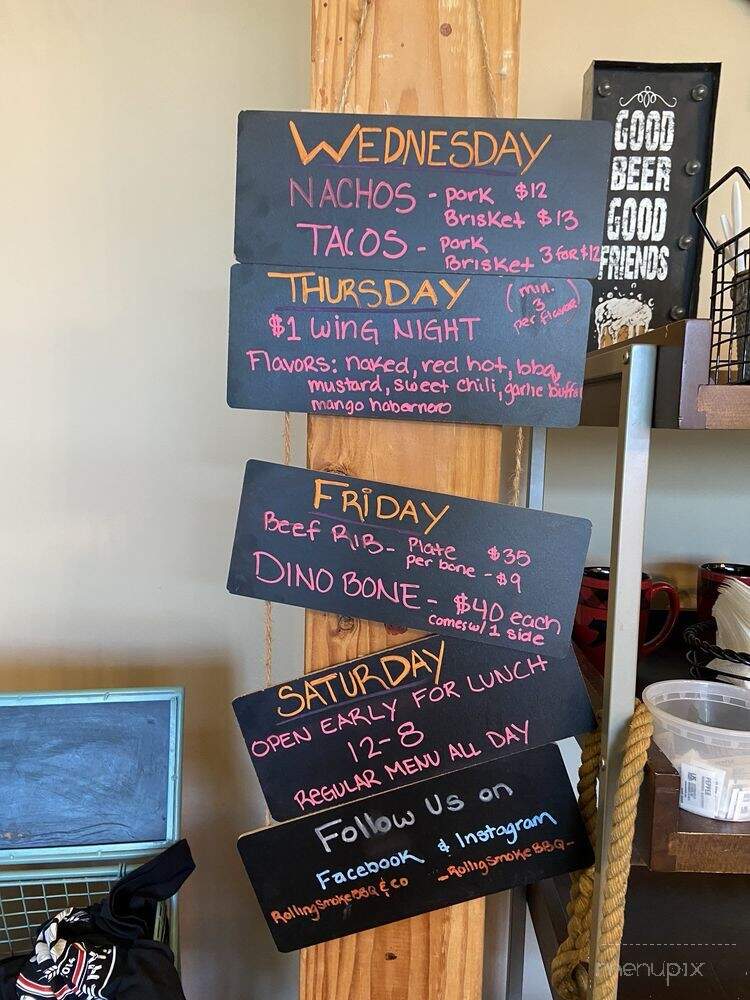 WEDNESDAY
NACHOS - pork $12
Brisket $13
TACOS - pork
Brisket 3 for $12
THURSDAY
(min.
3
per flavor)
$1 WING NIGHT
Flavors: naked, red hot, bbq,
mustard, sweet chili, garlic buffalo
mango habernero
FRIDAY
Beef RIB - Plate $35
per bone - $9
DINO BONE - $40 each
comes w/ 1 side
SATURDAY
OPEN EARLY FOR LUNCH
12-8
REGULAR MENU ALL DAY
Follow Us on
Facebook & Instagram
RollingSmokeBBQ & CO -RolligSmokeBBQ-
GOOD
BEER
GOOD
FRIENDS
PEPPER
menupix